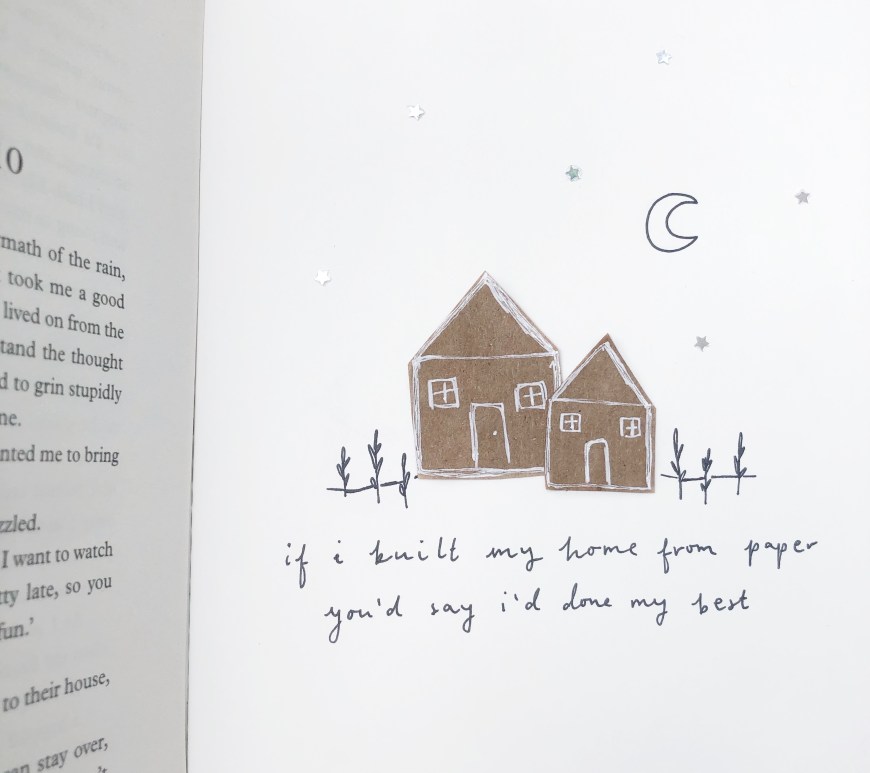 0
math of the rain,
took me a good
lived on from the
tand the thought
d to grin stupidly
ne.
nted me to bring
zzled.
I want to watch
tty late, so you
fun.'
to their house,
an stay over,
if i built my home from paper
you'd say i'd done my best